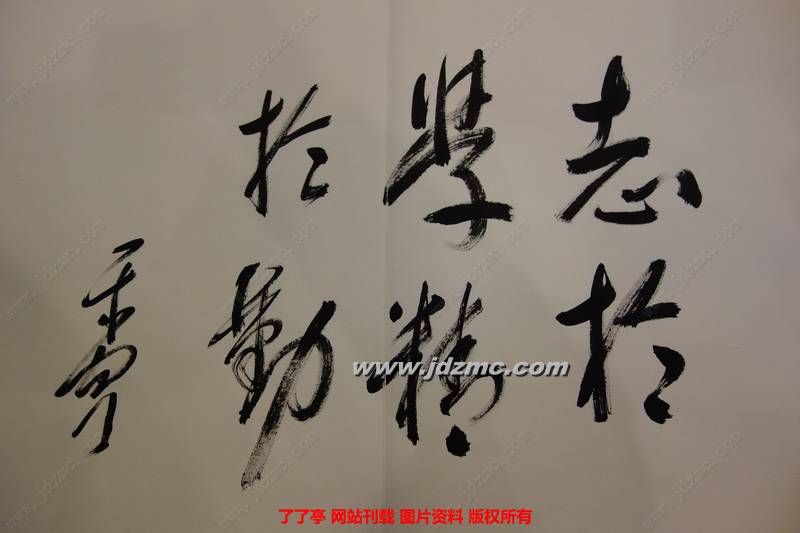 志於
學精
於勤
www.jdzmc.com
了了亭 网站刊载 图片资料 版权所有